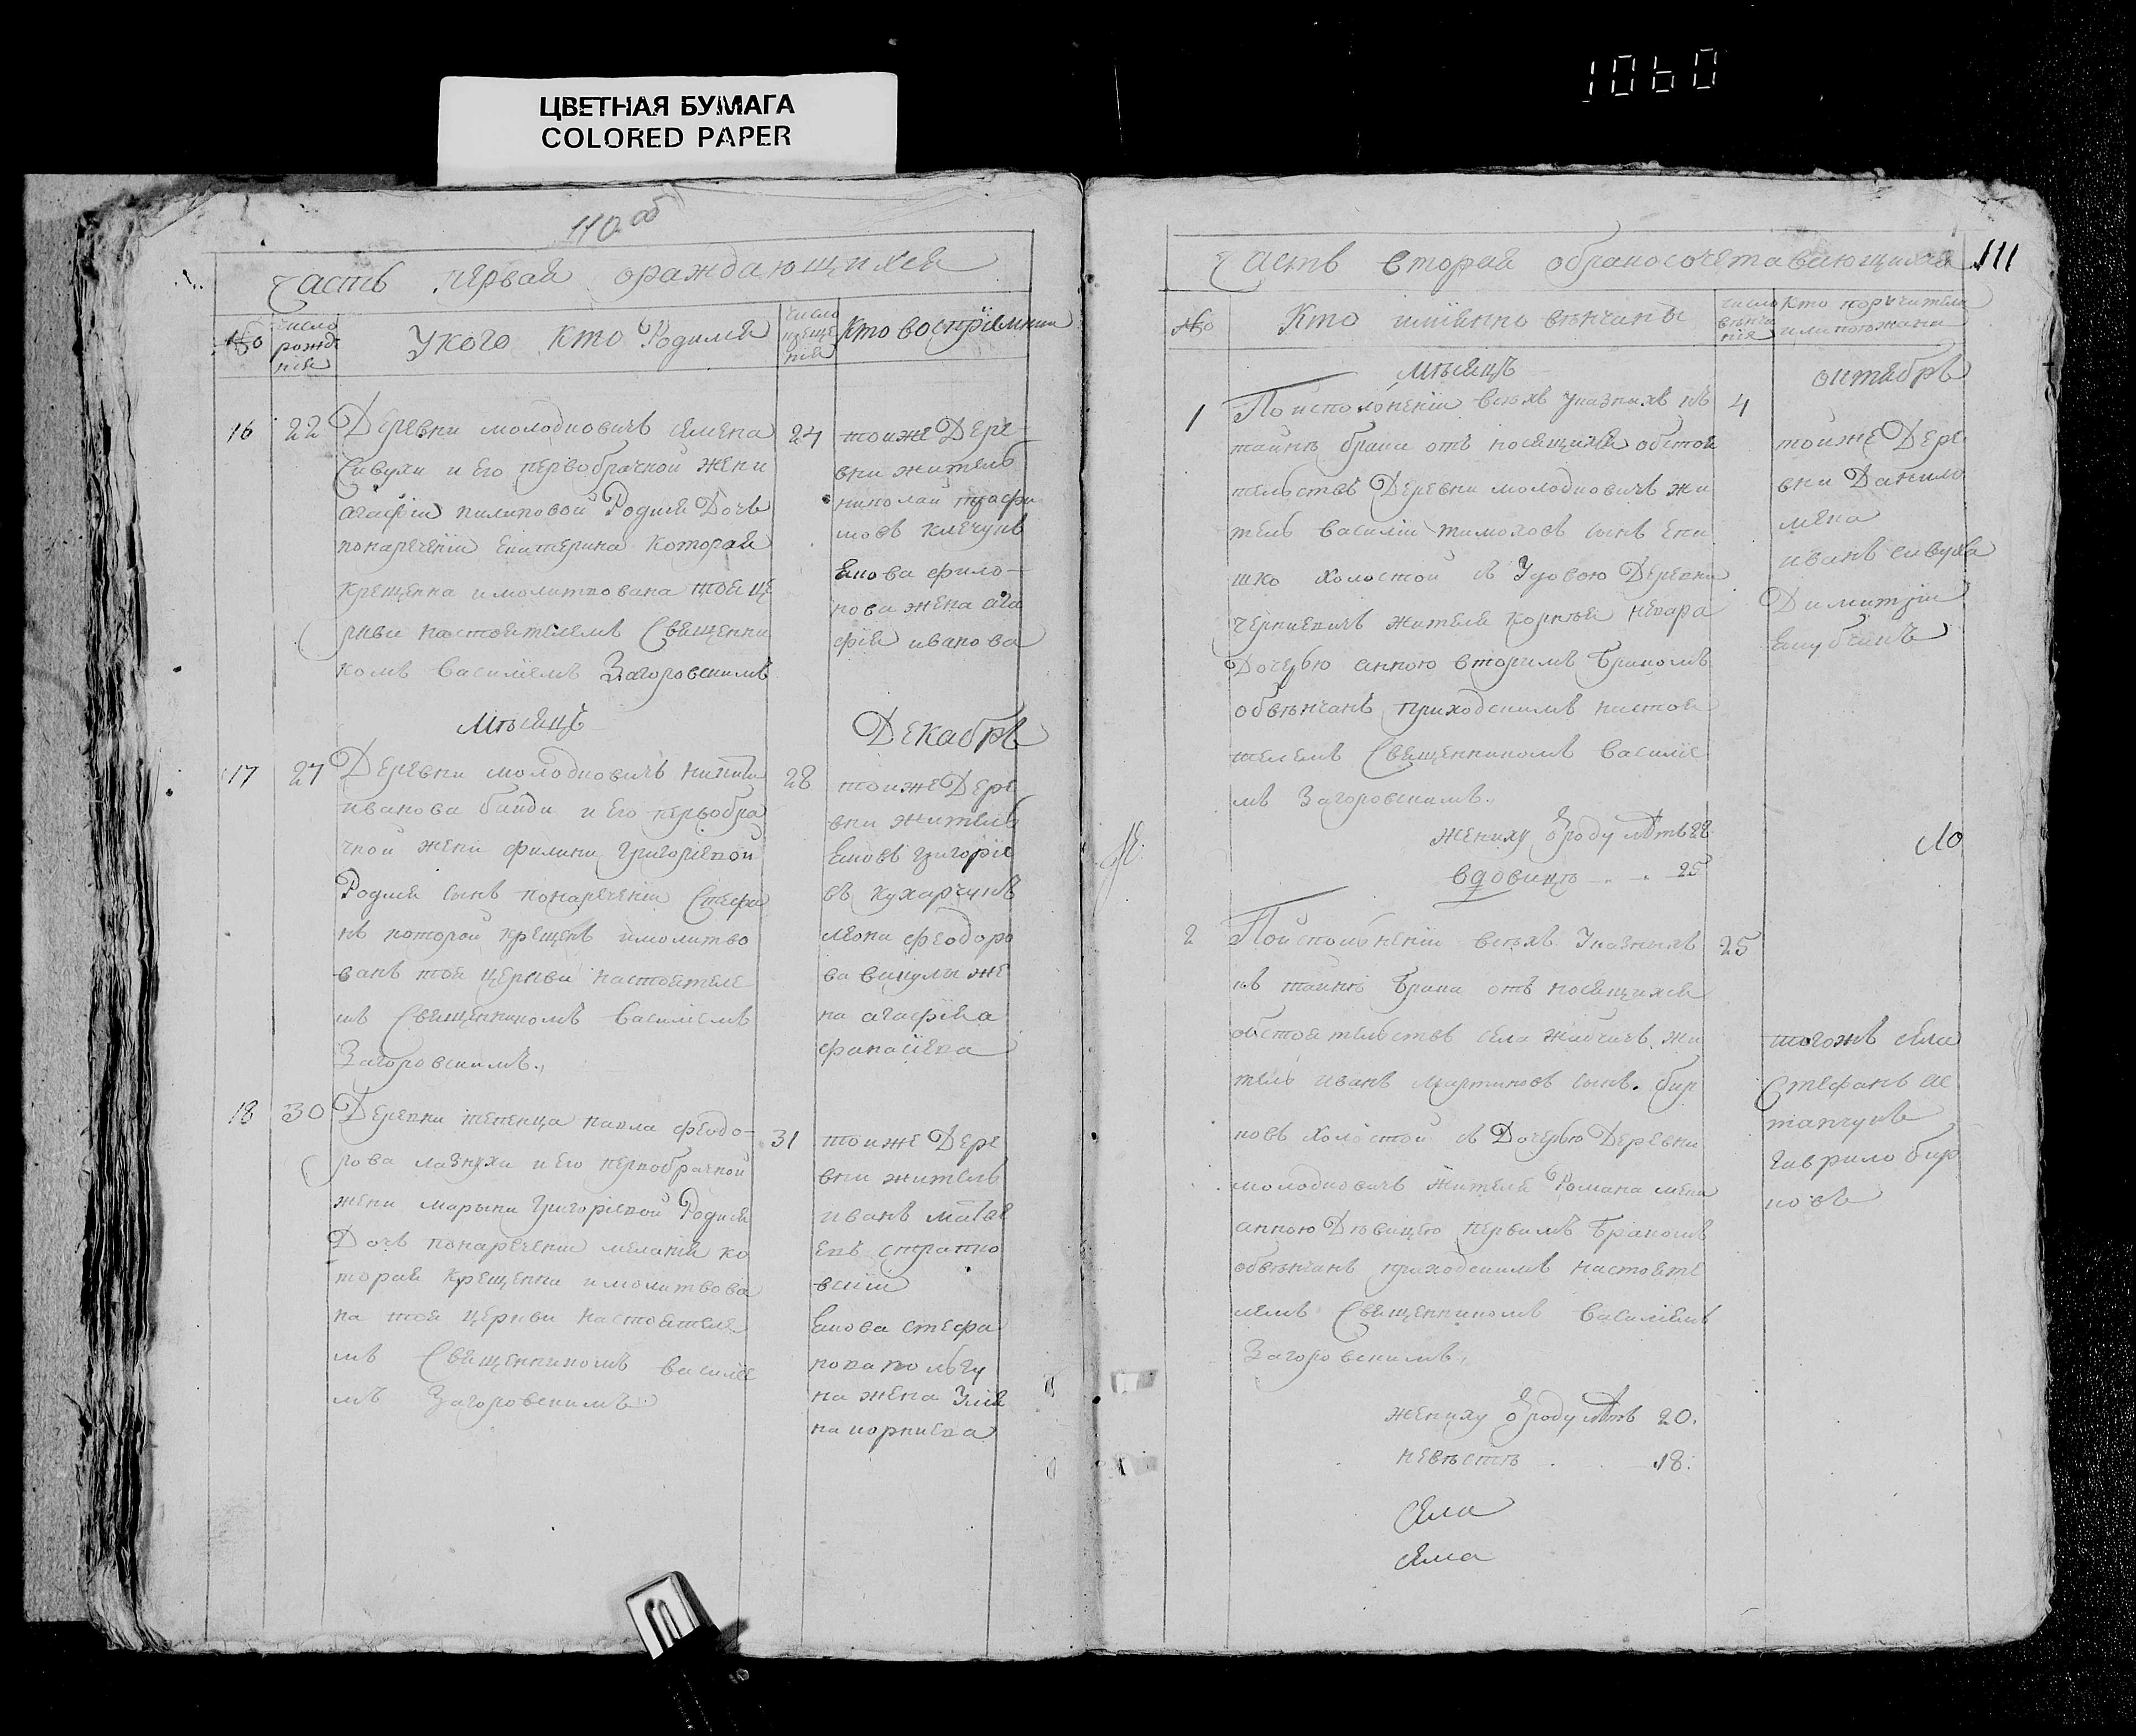 1060
ЦВЕТНАЯ БУМАГА
COLORED PAPER
110 об
Часть первая ораждающихся
№
число рожде нія
Укого кто Родился
число креще нія
Кто воспріемники
16
22
Деревни молодковичъ семена
Сивухи и Его первобрачной жени
агафіи пилиповой Родися Дочь
понареченіи Екатерина Которая
Крещенна имолитвована тоей це
ркви настоятелемъ Священни
комъ Василіемъ Загоровскимъ
24
тоиже Дере
вни житель
николай
клечукъ
Якова фило
нова жена ага
фія иванова
мѣсяцъ
Декабрь
17
27
Деревни молодковичъ
иванова байди и Его первобра
чной жени Григоріевой
Родися сынъ понареченіи Стефа
нъ которой крещенъ имолитво
ванъ тоя церкви настоятеле
мъ Священникомъ Василіемъ
Загоровскимъ.
28
тоиже Дере
вни житель
Яковъ григоріе
въ кухарчукъ
феодоро
ва вакулы же
на агафія а
фанасіева
18
30
Деревни тепенца павла феодо
рова лазуки и Его первобрачной
жени марыни Григоріевой Родися
Дочь понареченіи меланія ко
торая Крещенна имолитвова
на тоя церкви настоятеле
мъ Священникомъ василіе
мъ Загоровскимъ
31
тоиже Дере
вни житель
иванъ матве
евъ
вскіи
Якова стефа
нова
на жена Улія
на корніева
111
Часть вторая обракосочетавающихся
№
Кто имянно вѣнчаны
число вѣнча нія
Кто поручители или поезжани
мѣсяцъ
октябрь
1
Поисполненіи всѣхъ указныхъ къ
таинѣ брака отъ носящихся обстоя
тельствъ Деревни молодковичъ жи
тель василіи тимоховъ сынъ
холостой съ Удовою Деревни
черниевичъ жителя корнѣя
Дочерью анною вторимъ Бракомъ
обвѣнчанъ приходскимъ настоя
телемъ Священникомъ василіе
мъ Загоровскимъ.
жениху ѿроду лѣтъ 22
вдовицѣ 25
4
тоиже Дере
вни Данило
мена
иванъ сивуха
Димитріи
Якубчикъ
2
Поисполненіи всѣхъ Указныхъ
къ таинѣ Брака отъ носящихся
обстоятельствъ села жабчичъ жи
тель иванъ мартиновъ сынъ бир
ковъ холостой съ Дочерью Деревни
молодковичъ жителя Романа мени
анною Дѣвицею первимъ Бракомъ
обвѣнчанъ приходскимъ настояте
лемъ Священникомъ Василіемъ
Загоровскимъ.
жениху ѿроду лѣтъ 20.
невѣстѣ 18.
25
тогожъ села
Стефанъ ас
тапчукъ
Гаврило бир
ковъ
села
села